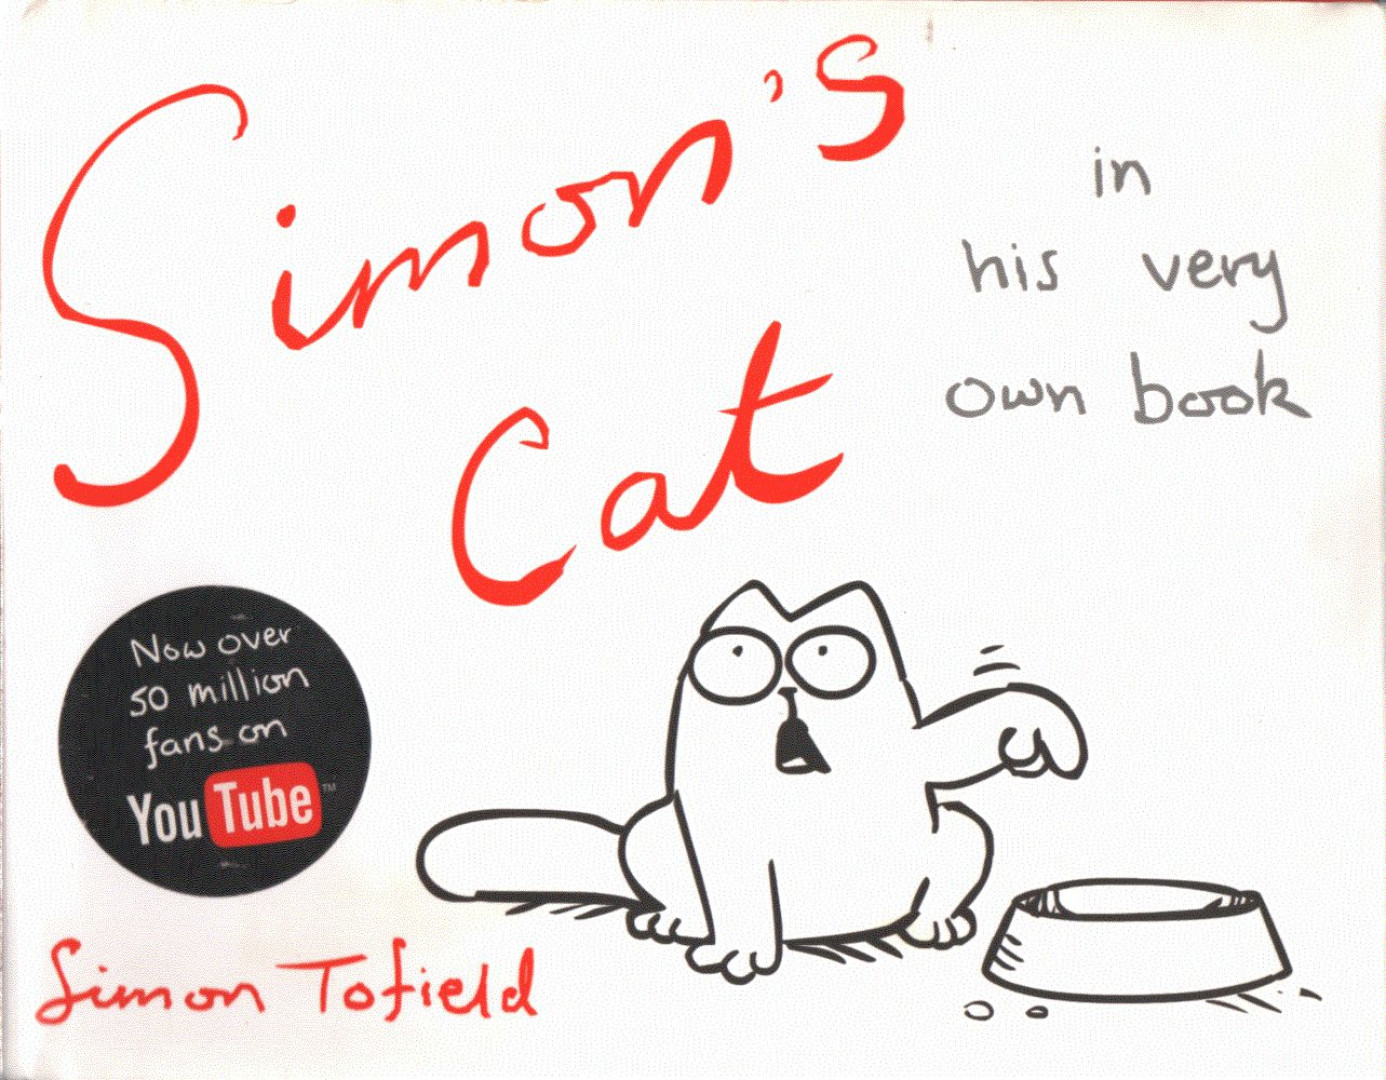 Simon's
Cat
in
his very
own book
Now over
50 million
fans on
YouTube™
Simon Tofield